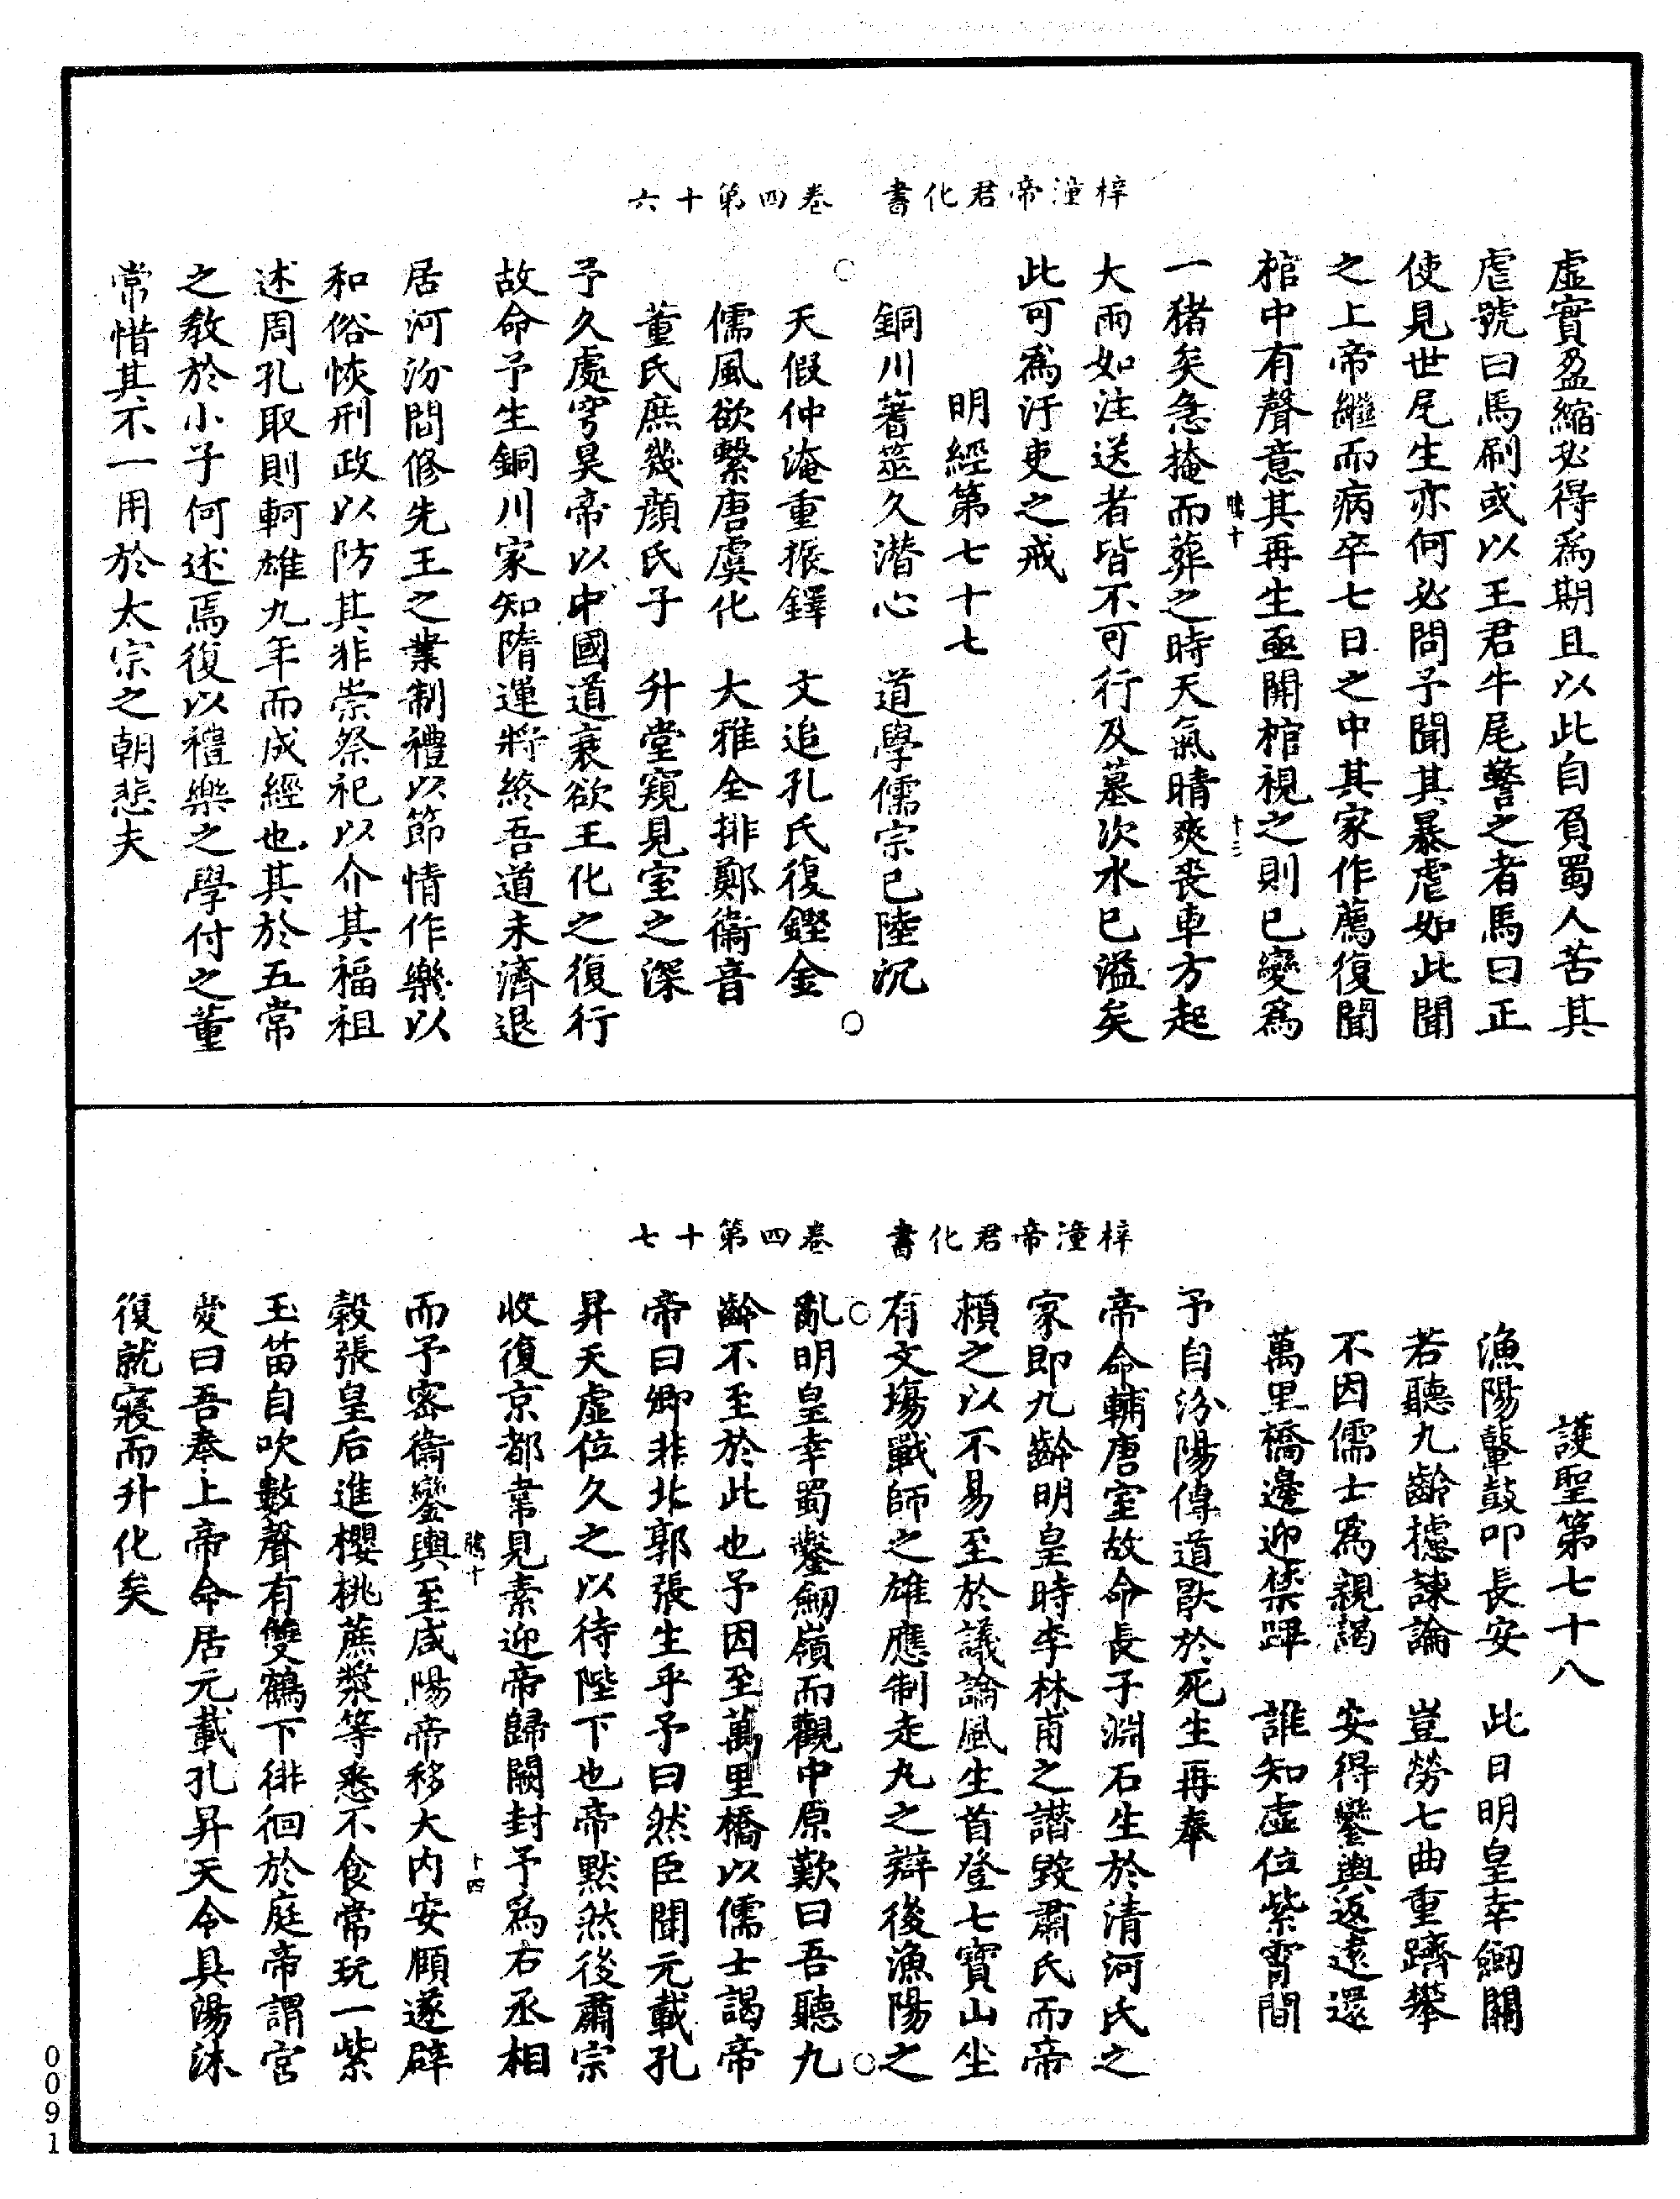 梓潼帝君化書　卷四第十六
虛實盈縮必得爲期且以此自負蜀人苦其
虐號曰馬刷或以王君牛尾警之者馬曰正
使見世尾生亦何必問予聞其暴虐如此聞
之上帝繼而病卒七日之中其家作薦復聞
棺中有聲意其再生亟開棺視之則已變爲
騰十　十三
一猪矣急掩而葬之時天氣晴爽喪車方起
大雨如注送者皆不可行及墓次水已溢矣
此可爲汙吏之戒
明經第七十七
銅川蓍筮久潛心　道學儒宗已陸沉
天假仲淹重振鐸　文追孔氏復鏗金
儒風欲繫唐虞化　大雅全排鄭衞音
董氏庶幾顏氏子　升堂窺見室之深
予久處穹昊帝以中國道衰欲王化之復行
故命予生銅川家知隋運將終吾道未濟退
居河汾間修先王之業制禮以節情作樂以
和俗恢刑政以防其非崇祭祀以介其福祖
述周孔取則軻雄九年而成經也其於五常
之教於小子何述焉復以禮樂之學付之董
常惜其不一用於太宗之朝悲夫
梓潼帝君化書　卷四第十七
護聖第七十八
漁陽鼙鼓叩長安　此日明皇幸劒關
若聽九齡攄諫論　豈勞七曲重躋攀
不因儒士爲親謁　安得鑾輿返遠還
萬里橋邊迎禁蹕　誰知虛位紫霄間
予自汾陽傳道歇於死生再奉
帝命輔唐室故命長子淵石生於清河氏之
家即九齡明皇時李林甫之譖毀肅氏而帝
賴之以不易至於議論風生首登七寶山坐
有文場戰師之雄應制走丸之辯後漁陽之
亂明皇幸蜀鑾劒嶺而觀中原歎曰吾聽九
齡不至於此也予因至萬里橋以儒士謁帝
帝曰卿非北郭張生乎予曰然臣聞元載孔
昇天虛位久之以待陛下也帝默然後肅宗
收復京都韋見素迎帝歸闕封予爲右丞相
騰十　十四
而予密衞鑾輿至咸陽帝移大內安頤遂辟
穀張皇后進櫻桃蔗漿等悉不食常玩一紫
玉笛自吹數聲有雙鶴下徘徊於庭帝謂宮
愛曰吾奉上帝命居元載孔昇天令具湯沐
復就寢而升化矣
0091